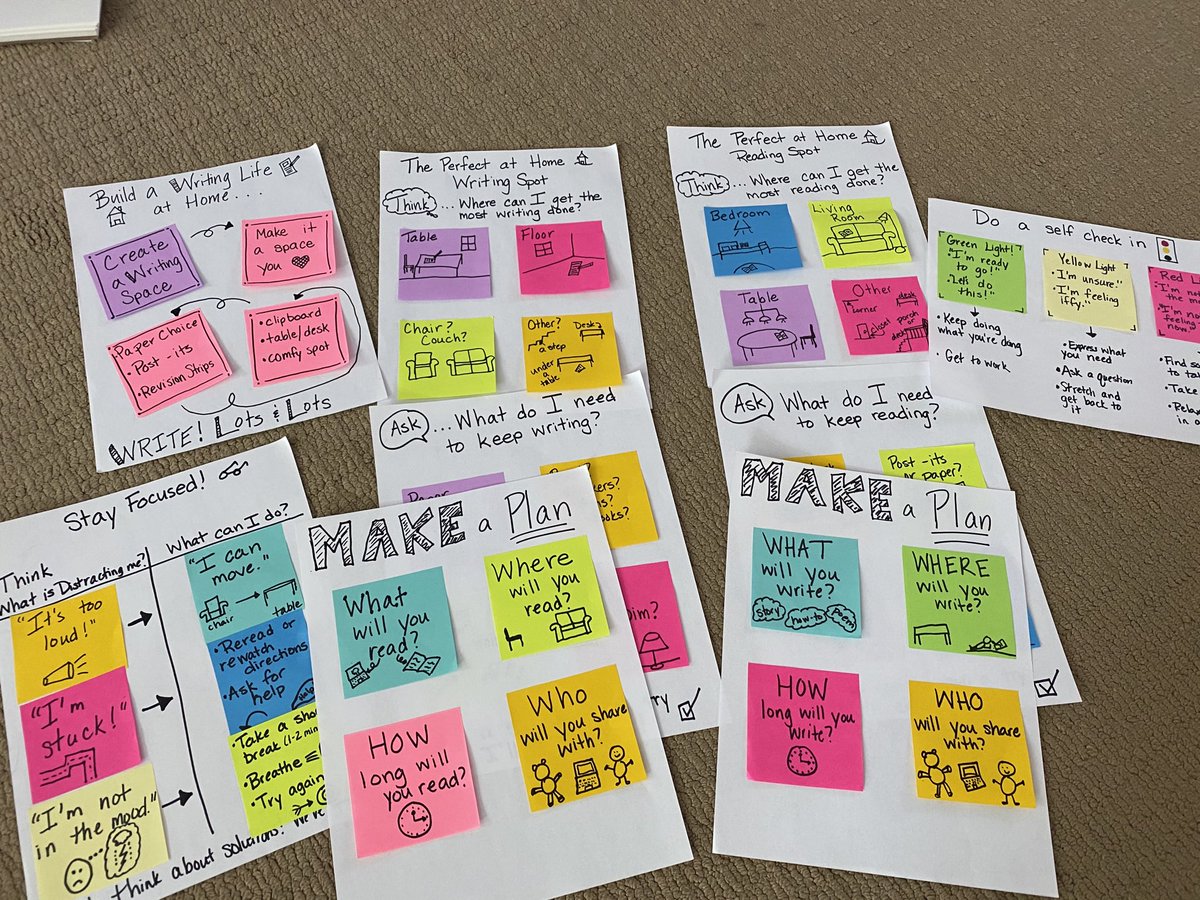 Build a Writing Life
at Home...
Create
a Writing
Space
Make it
a space
you
Paper Choice
• Post-its
• Revision Strips
• clipboard
• table/desk
• comfy spot
WRITE! Lots & Lots
The Perfect at Home
Writing Spot
Think ...Where can I get the
most writing done?
Table
Floor
Chair?
Couch?
Other?
Desk
a step
under
a
table
The Perfect at Home
Reading Spot
Think ...Where can I get the
most reading done?
Bedroom
Living
Room
Table
Other
corner
desk
closet
porch or
deck
Do a self check in
Green Light!
• "I'm ready
to go!"
• "Let's do
this!"
• Keep doing
what you're doing
• Get to work
Yellow Light
• "I'm unsure."
• "I'm feeling
iffy."
• Express what
you need
• Ask a question
• Stretch and
get back to
it
Red
I'm no
the m
I'm no
feeling
now
• Find so
to ta
• Take
in
Ask ...What do I need
to keep writing?
Ask What do I need
to keep reading?
Post-its
or paper?
Stay Focused!
Think
What is Distracting me?
What can I do?
"It's too
loud!"
"I can
move."
chair
table
"I'm
stuck!"
• Reread or
rewatch
directions
• Ask for
help
"I'm not
in the mood."
• Take a sho
break (1-2 min
• Breathe
• Try again
think about solutions!
MAKE a Plan
What
will you
read?
Where
will you
read?
HOW
long will
you read?
WHO
will you share
with?
MAKE a Plan
WHAT
will you
write?
story
how-to
Poem
WHERE
will you
write?
HOW
long will you
write?
WHO
will you share
with?